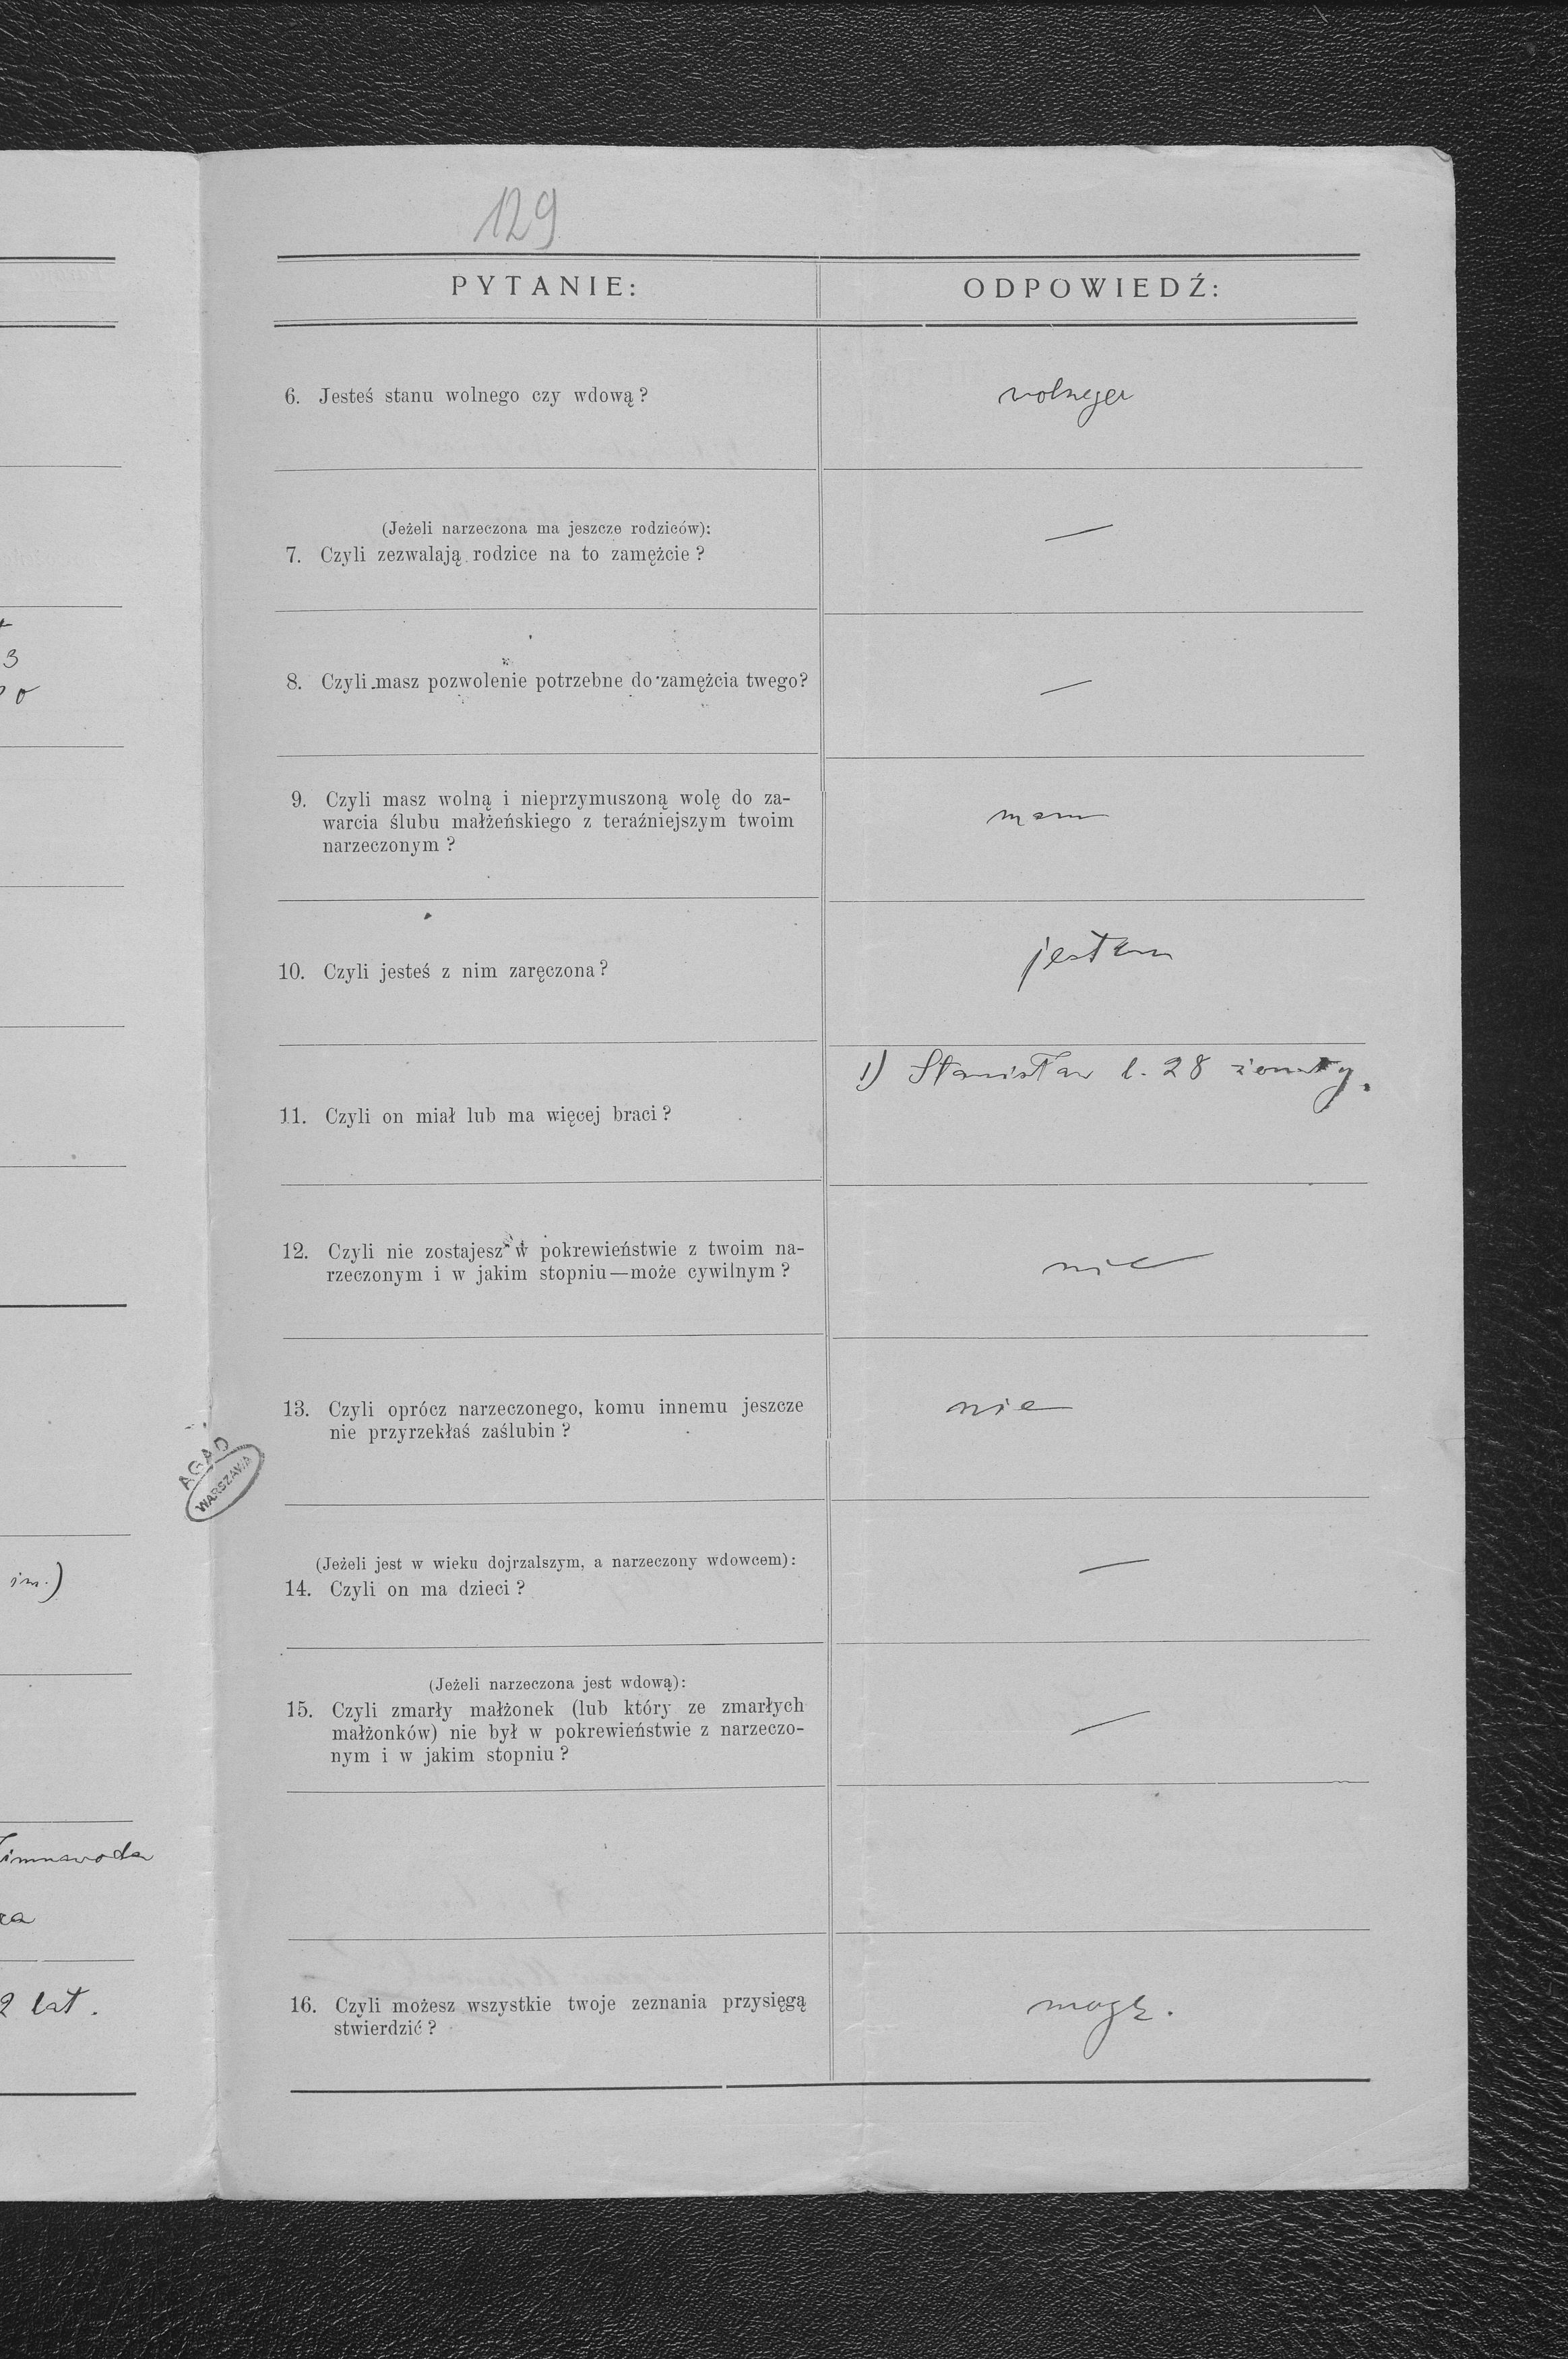 129
PYTANIE:
ODPOWIEDŹ:
6. Jesteś stanu wolnego czy wdową?
wolnego
(Jeżeli narzeczona ma jeszcze rodziców):
7. Czyli zezwalają rodzice na to zamężcie?
—
8. Czyli masz pozwolenie potrzebne do zamężcia twego?
—
9. Czyli masz wolną i nieprzymuszoną wolę do za-
warcia ślubu małżeńskiego z teraźniejszym twoim
narzeczonym?
mam
10. Czyli jesteś z nim zaręczona?
jestem
11. Czyli on miał lub ma więcej braci?
1) Stanisław l. 28 żonaty.
12. Czyli nie zostajesz w pokrewieństwie z twoim na-
rzeczonym i w jakim stopniu—może cywilnym?
nie
13. Czyli oprócz narzeczonego, komu innemu jeszcze
nie przyrzekłaś zaślubin?
nie
(Jeżeli jest w wieku dojrzalszym, a narzeczony wdowcem):
14. Czyli on ma dzieci?
—
(Jeżeli narzeczona jest wdową):
15. Czyli zmarły małżonek (lub który ze zmarłych
małżonków) nie był w pokrewieństwie z narzeczo-
nym i w jakim stopniu?
—
16. Czyli możesz wszystkie twoje zeznania przysięgą
stwierdzić?
mogę.
AGAD
WARSZAWA
3
im.)
2 lat.